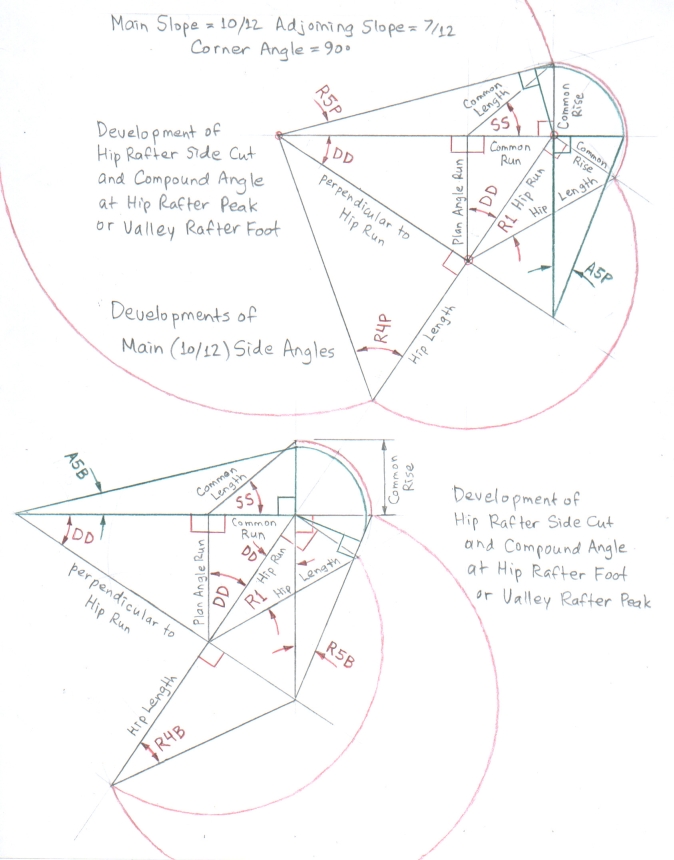 Main Slope = 10/12 Adjoining Slope = 7/12
Corner Angle = 90°
R5P
Common
Length
SS
Common
Rise
Development of
Hip Rafter Side Cut
and Compound Angle
at Hip Rafter Peak
or Valley Rafter Foot
DD
Common
Run
Common
Rise
perpendicular to
Hip Run
Plan Angle Run
DD
Hip Run
R1
Hip Length
A5P
Developments of
Main (10/12) Side Angles
R4P
Hip Length
A5B
Common
Length
SS
Common
Rise
Development of
Hip Rafter Side Cut
and Compound Angle
at Hip Rafter Foot
or Valley Rafter Peak
DD
Common
Run
DD
perpendicular to
Hip Run
Plan Angle Run
DD
Hip Run
R1
Hip Length
R5B
Hip Length
R4B